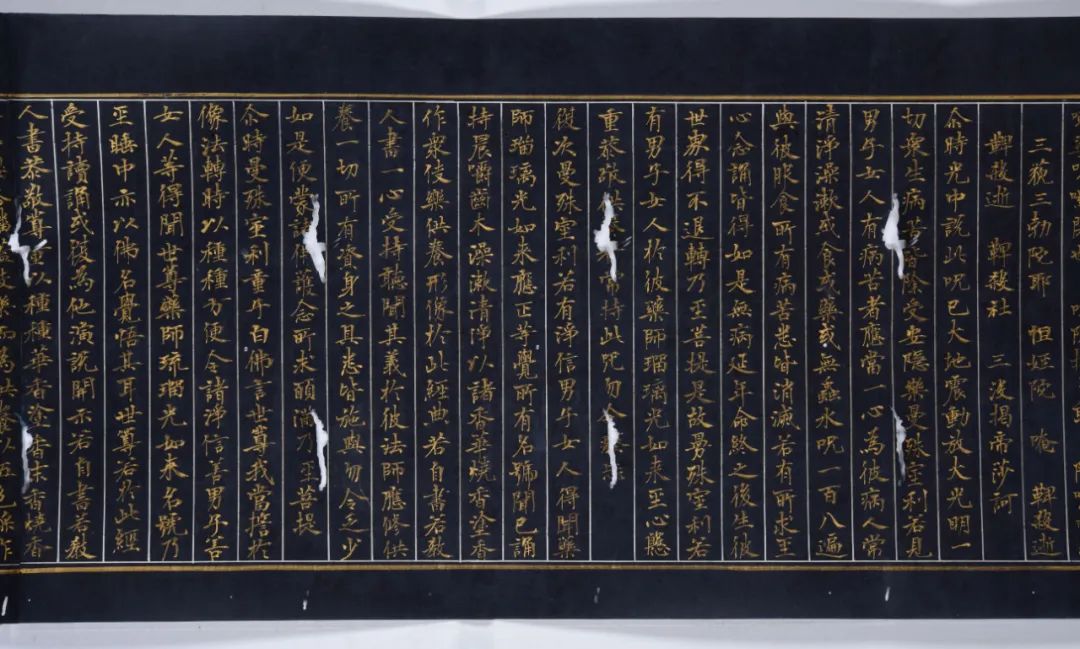 三藐三勃陁耶　怛姪陁　唵　鞞殺逝
鞞殺逝　鞞殺社　三没揭帝莎訶
尒時光中說此呪已大地震動放大光明一
切衆生病苦皆除受安隱樂曼殊室利若見
男子女人有病苦者應當一心為彼病人常
清淨澡漱或食或藥或無蟲水呪一百八遍
與彼服食所有病苦悉皆消滅若有所求至
心念誦皆得如是無病延年命終之後生彼
世界得不退轉乃至菩提是故曼殊室利若
有男子女人於彼藥師瑠璃光如来至心慇
重恭敬供養常持此呪勿令
復次曼殊室利若有淨信男子女人得聞藥
師瑠璃光如来應正等覺所有名號聞已誦
持晨嚼齒木澡漱清淨以諸香華燒香塗香
作衆伎樂供養形像於此經典若自書若教
人書一心受持聽聞其義於彼法師應修供
養一切所有資身之具悉皆施與勿令乏少
如是便蒙諸佛護念所求願滿乃至菩提
尒時曼殊室利童子白佛言世尊我當誓於
像法轉時以種種方便令諸淨信善男子善
女人等得聞世尊藥師琉璃光如来名號乃
至睡中亦以佛名覺悟其耳世尊若於此經
受持讀誦或復為他演說開示若自書若教
人書恭敬尊重以種種華香塗香末香燒香